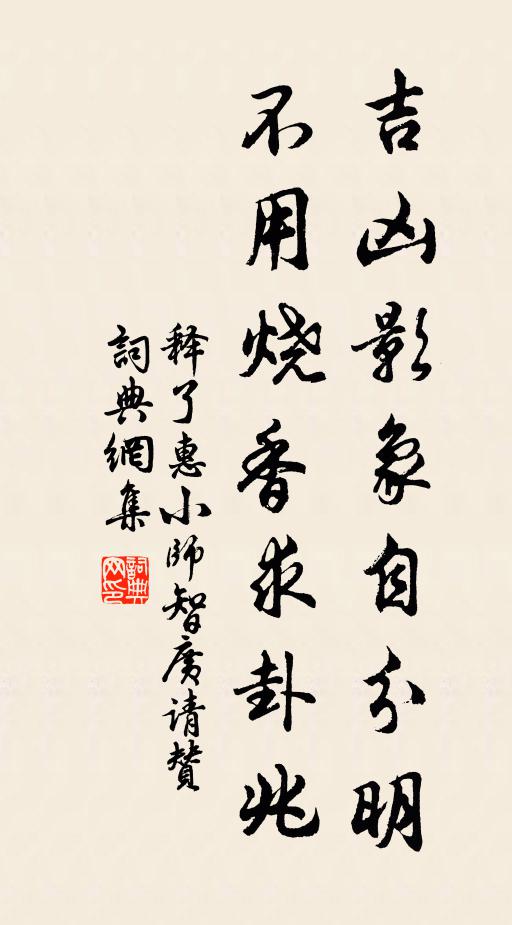 吉凶影象自分明
不用烧香求卦兆
释了惠小师智廣请贊
詞典網集
詞典网印